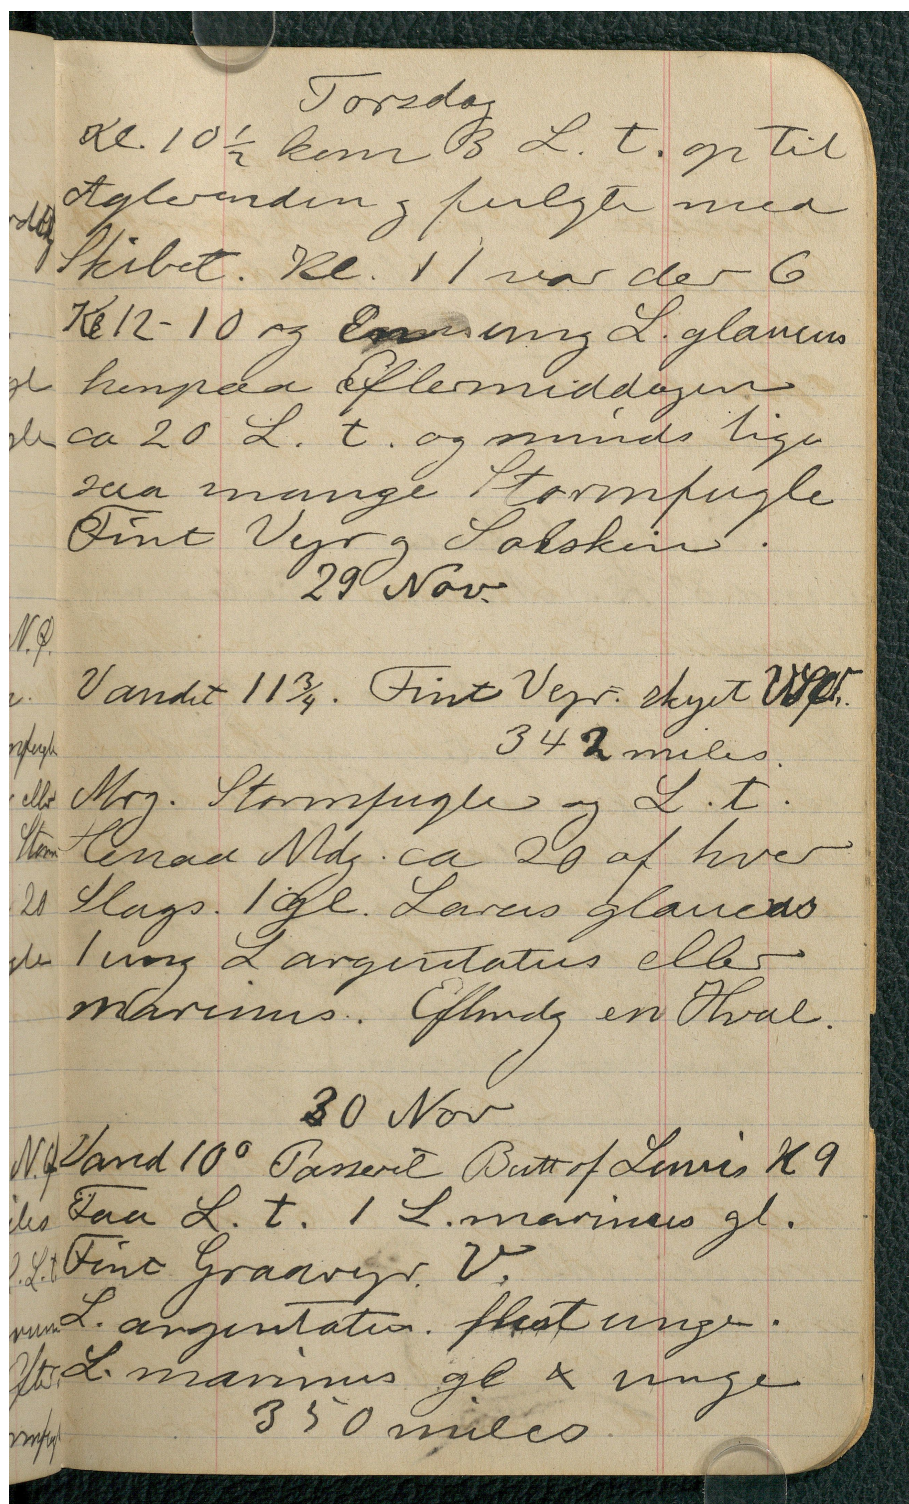 Torsdag
Kl. 10 1/2 kom 3 L. t. op til
Agterenden og fulgte med
Skibet. Kl. 11 var der 6
Kl 12 - 10 og En ung L. glaucus
henpaa Eftermiddagen
ca 20 L. t. og minds lige
saa mange Stormfugle
Fint Vejr og Solskin.
29 Nov.
Vandet 11 3/4. Fint Vejr. skyet
342 miles.
Mrg. Stormfugle og L. t.
Henad Mdg. ca 20 af hver
Slags. 1 gl. Larus glaucus
1 ung L argentatus eller
marinus. Eftmdg en Hval.
30 Nov
Vand 10° Passeret Butt of Lewis Kl 9
Faa L. t. 1 L. marinus gl.
Fint Graavejr. V.
L. argentatus. flest unge.
L. marinus gl & unge
350 miles